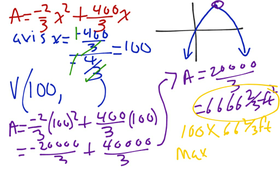 A = -2/3 x² + 400/3 x
axis x = (+400/3)/(+4/3) = 100
V(100,
A = -2/3 (100)² + 400/3 (100)
= -20000/3 + 40000/3
A = 20000/3
= 6666 2/3 ft²
100 X 66 2/3 ft
max